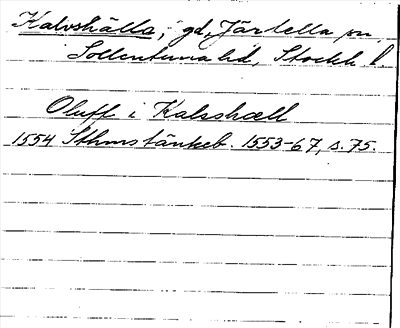 Kalvshälla, gd, Järfella sn,
Sollentuna hd, Stockh l
Oluff i Kalsshæll
1554 Sthms tänkeb. 1553-67, s. 75.